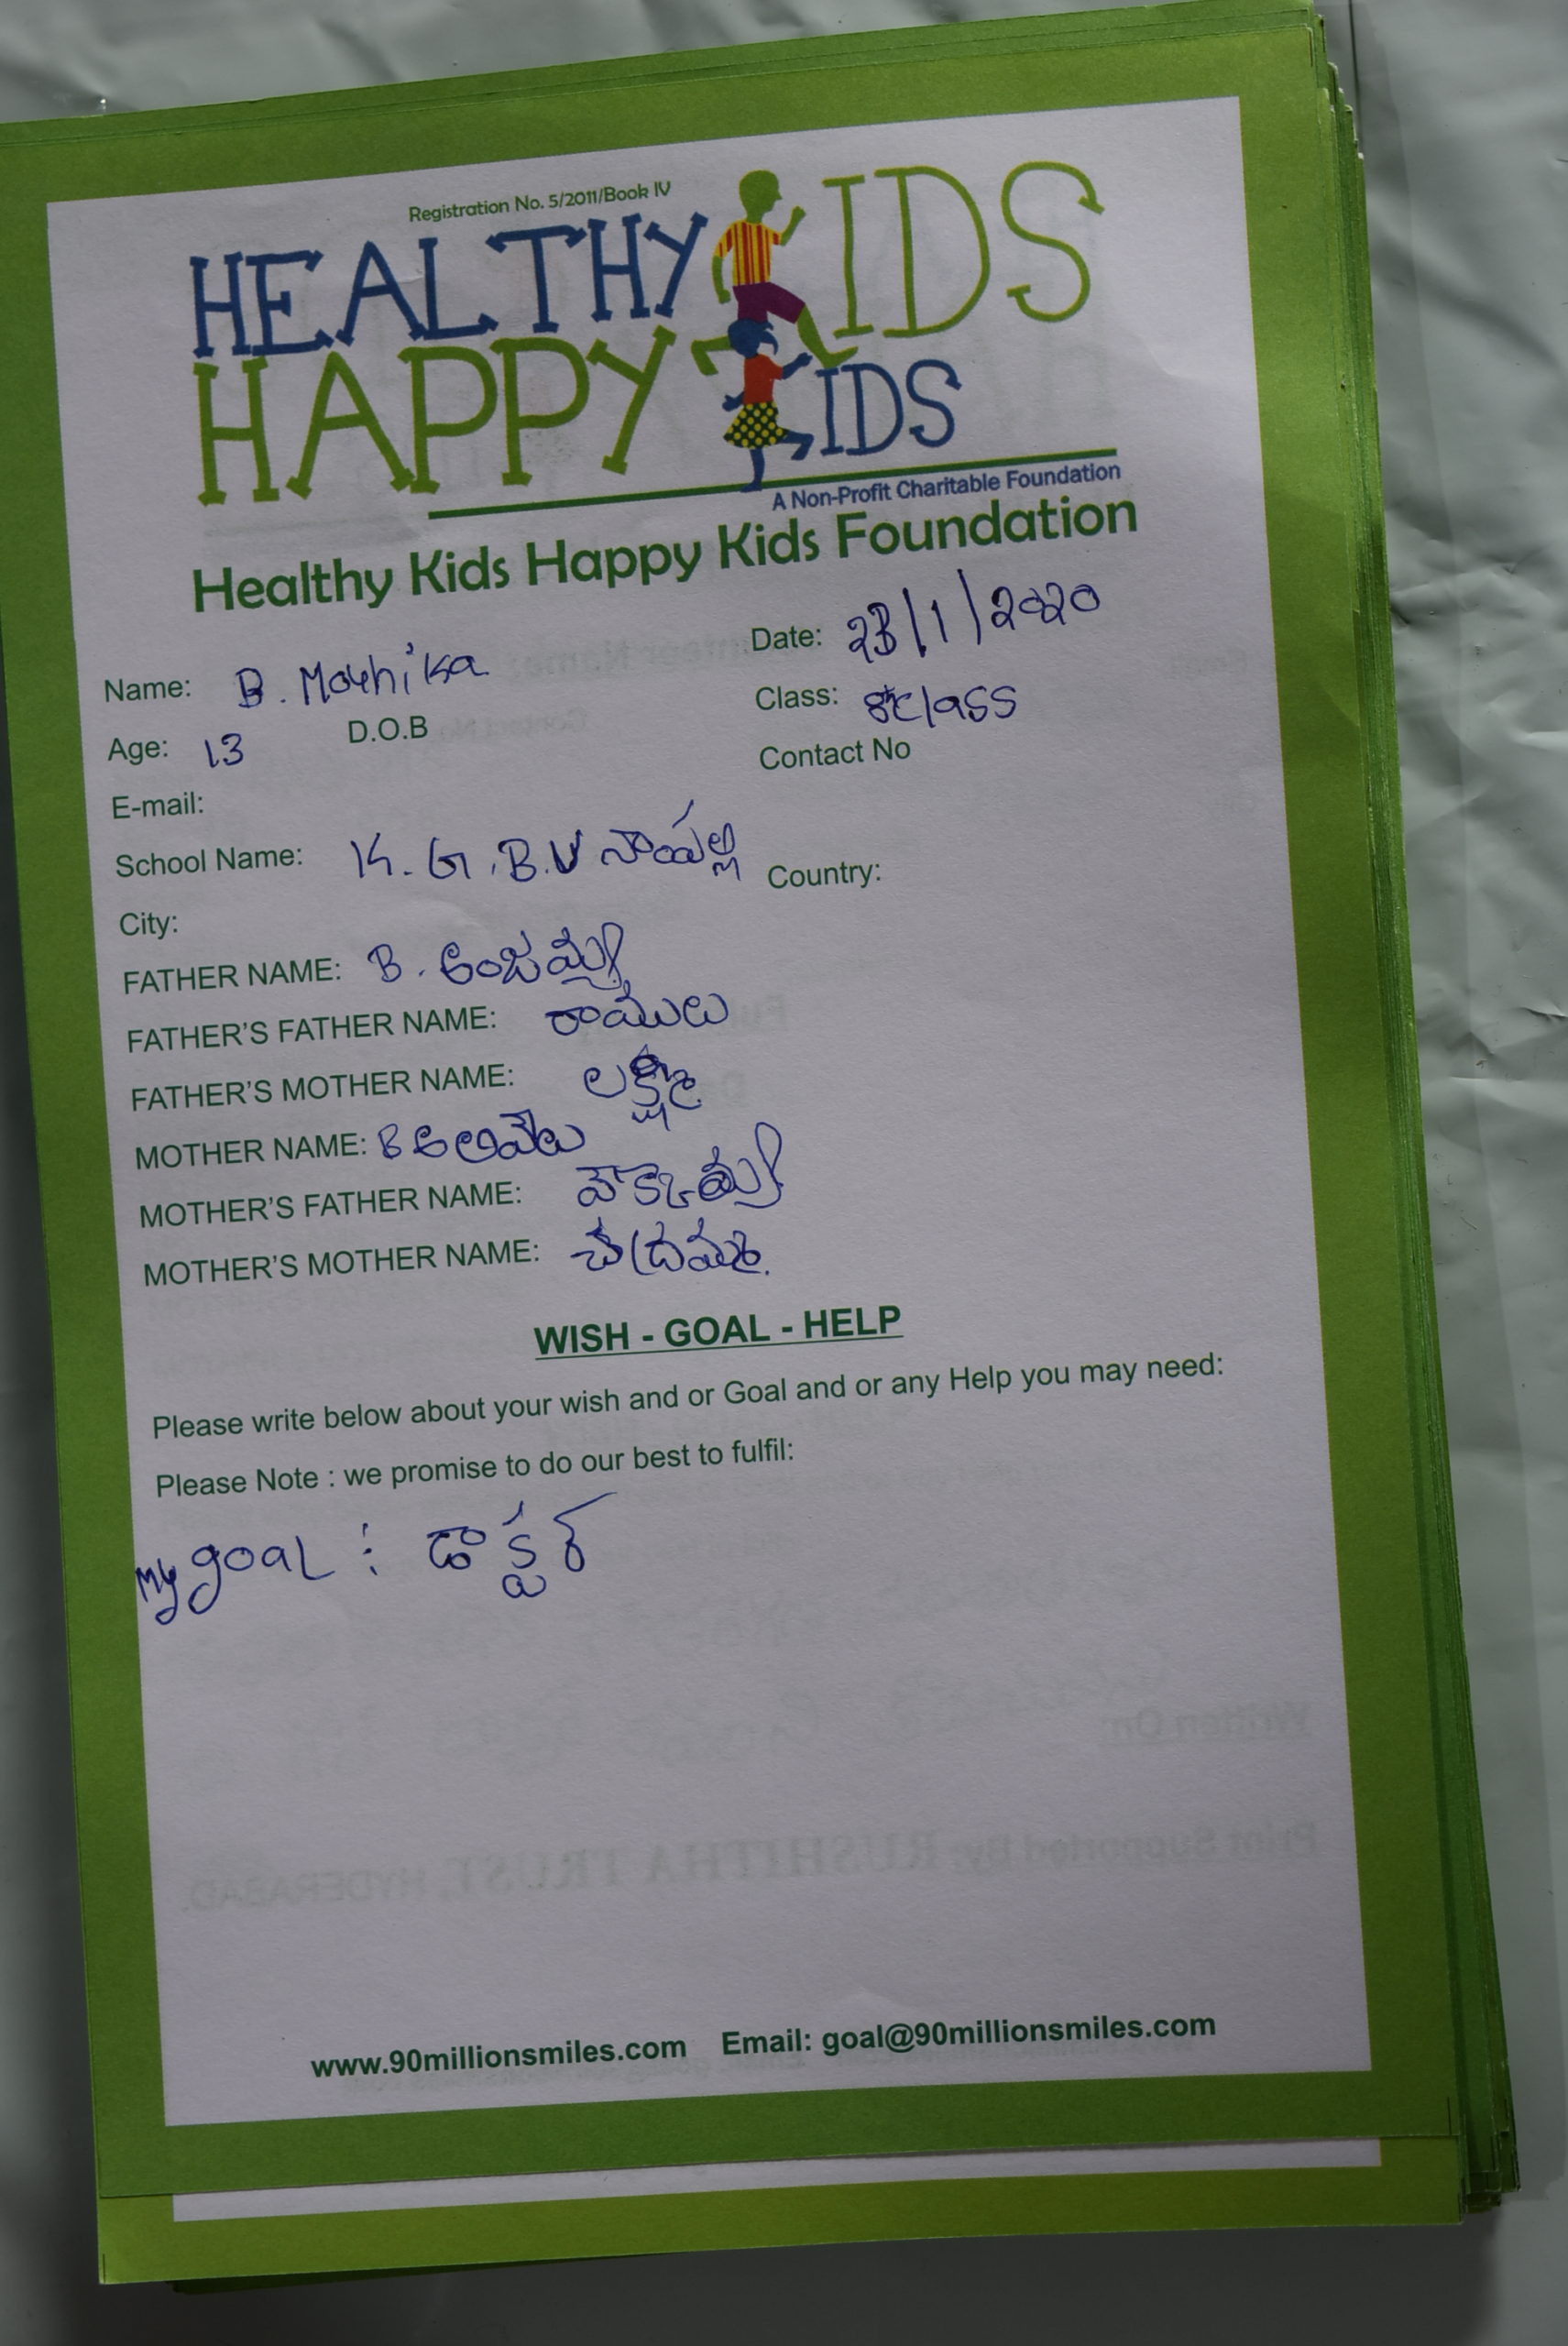 Registration No. 5/2011/Book IV
HEALTHY KIDS
HAPPY KIDS
A Non-Profit Charitable Foundation
Healthy Kids Happy Kids Foundation
Date: 23/1/2020
Name: B. Mouhika
Class: 8 class
Age: 13 D.O.B
Contact No
E-mail:
School Name: K. G. B. V నాంపల్లి
Country:
City:
FATHER NAME: B. అంజమ్య
FATHER'S FATHER NAME: రాములు
FATHER'S MOTHER NAME: లక్ష్మి
MOTHER NAME: B అలివేలు
MOTHER'S FATHER NAME:
MOTHER'S MOTHER NAME:
WISH - GOAL - HELP
Please write below about your wish and or Goal and or any Help you may need:
Please Note : we promise to do our best to fulfil:
My goal : డాక్టర్
www.90millionsmiles.com Email: goal@90millionsmiles.com